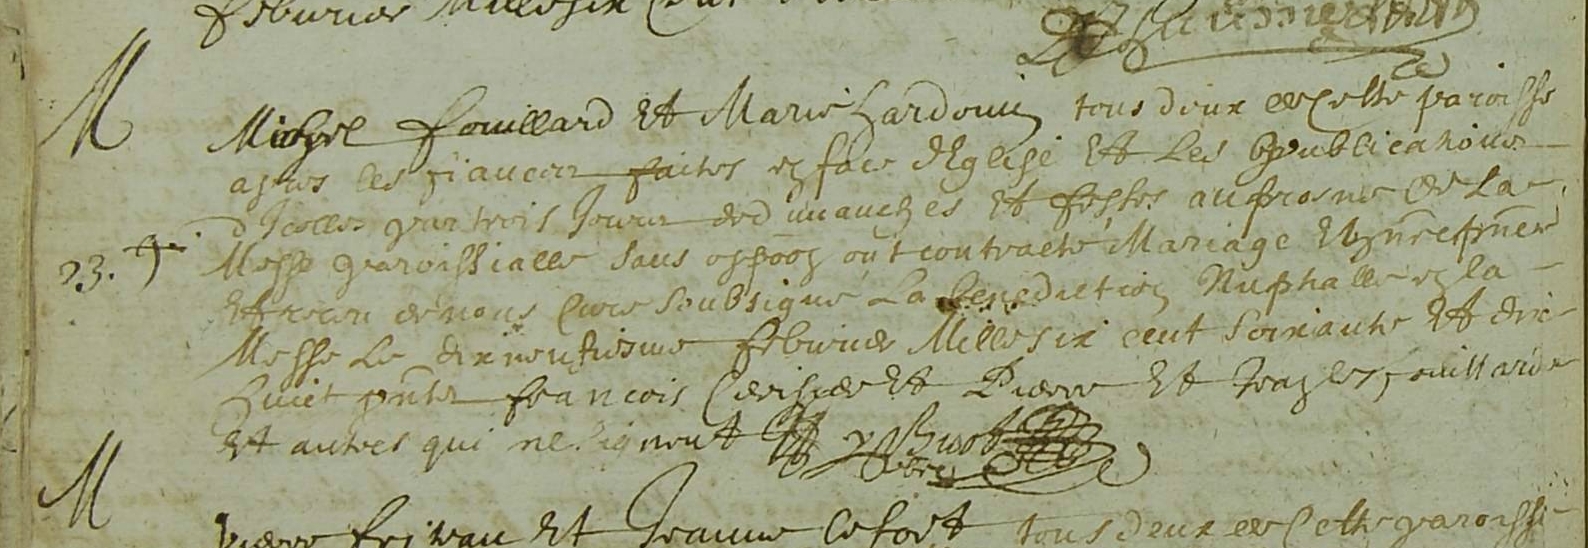 febvrier Mille six Cent
M
Michel fouillard Et Marie hardouin tous deux de Cette paroisse
apres les fiances faites en face d'Eglise Et Les publications
d'Icelles par trois Jours de dimanches Et festes au prosne de La
23. Messe paroissialle sans opposon ont contracté Mariage
Et receu de nous Curé soubsigné La benediction Nuptialle en la
Messe Le dixneufiesme febvrier Mille six cent soixante Et dix
huict pnts francois Et Pierre Et Jean les fouillards
Et autres qui ne signent
M
Pierre Et Jeanne lefort tous deux de Cette paroisse